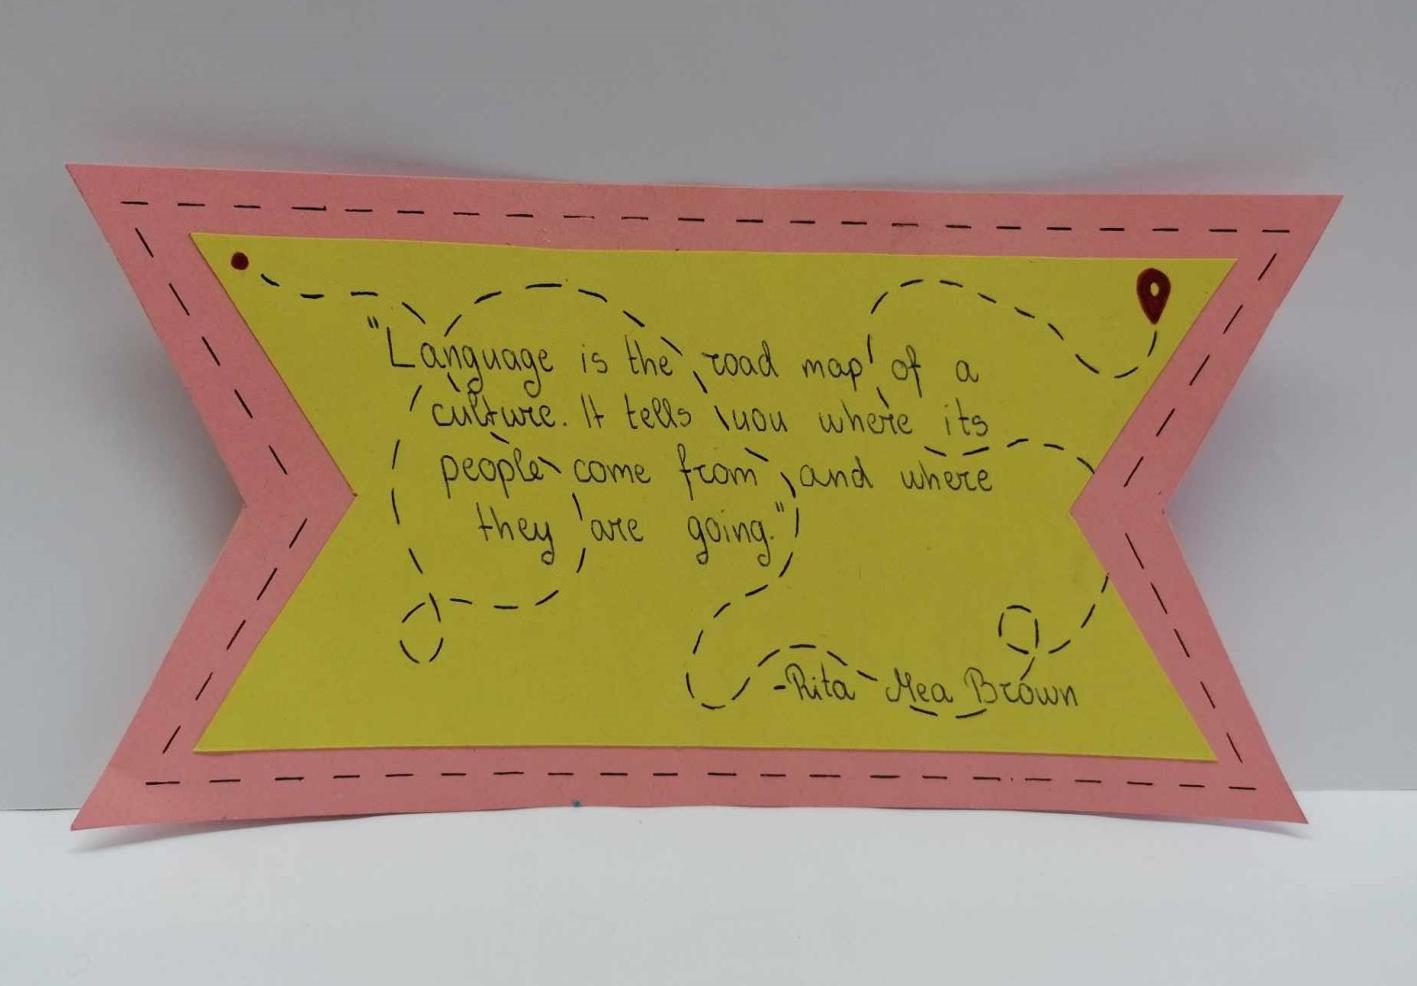 "Language is the road map of a
culture. It tells you where its
people come from and where
they are going."
-Rita Mea Brown